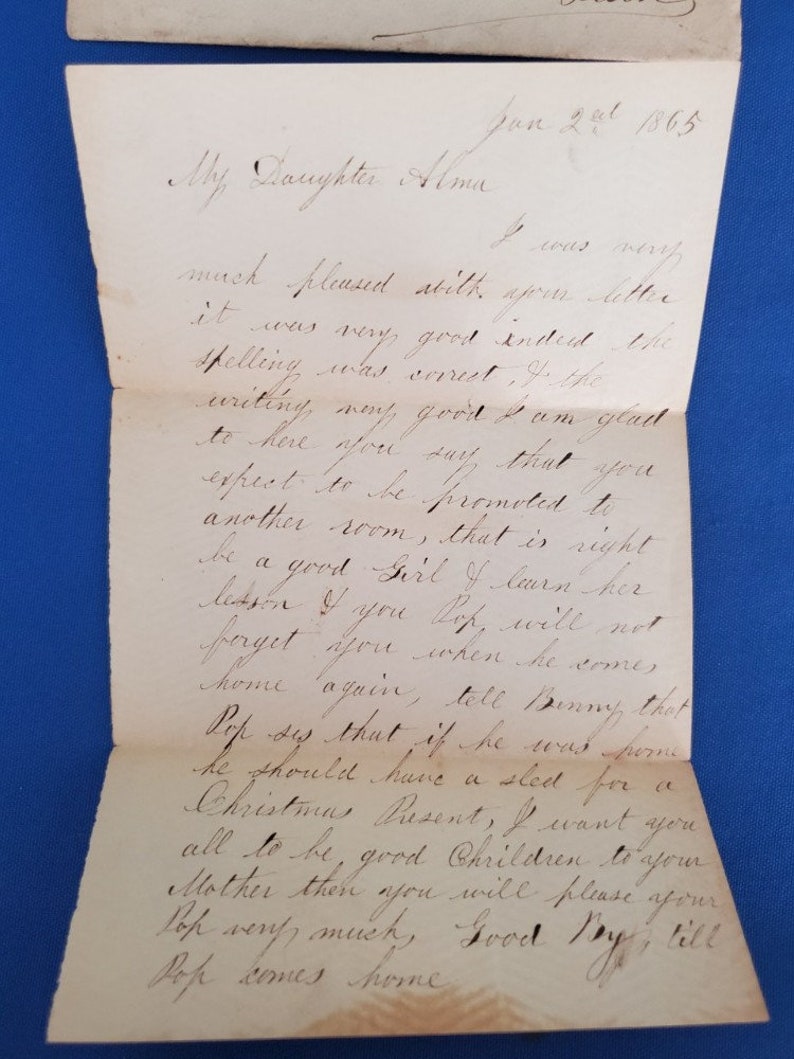 Jan 2ed 1865
My Daughter Alma
I was very
much pleased with your letter
it was very good indeed the
spelling was correct, & the
writing very good I am glad
to here you say that you
expect to be promoted to
another room, that is right
be a good Girl & learn her
lesson & you Pop will not
forget you when he comes
home again, tell Binny that
Pop ses that if he was home
he should have a sled for a
Christmas Present, I want you
all to be good Chrildren to your
Mother then you will please your
Pop very much, Good By, till
Pop comes home